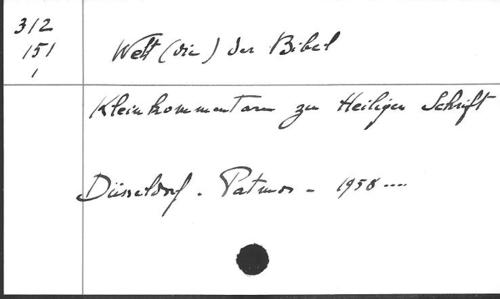 312
151
1
Welt (die) der Bibel
Kleinkommentare zur Heiligen Schrift
Düsseldorf - Patmos - 1958 ....